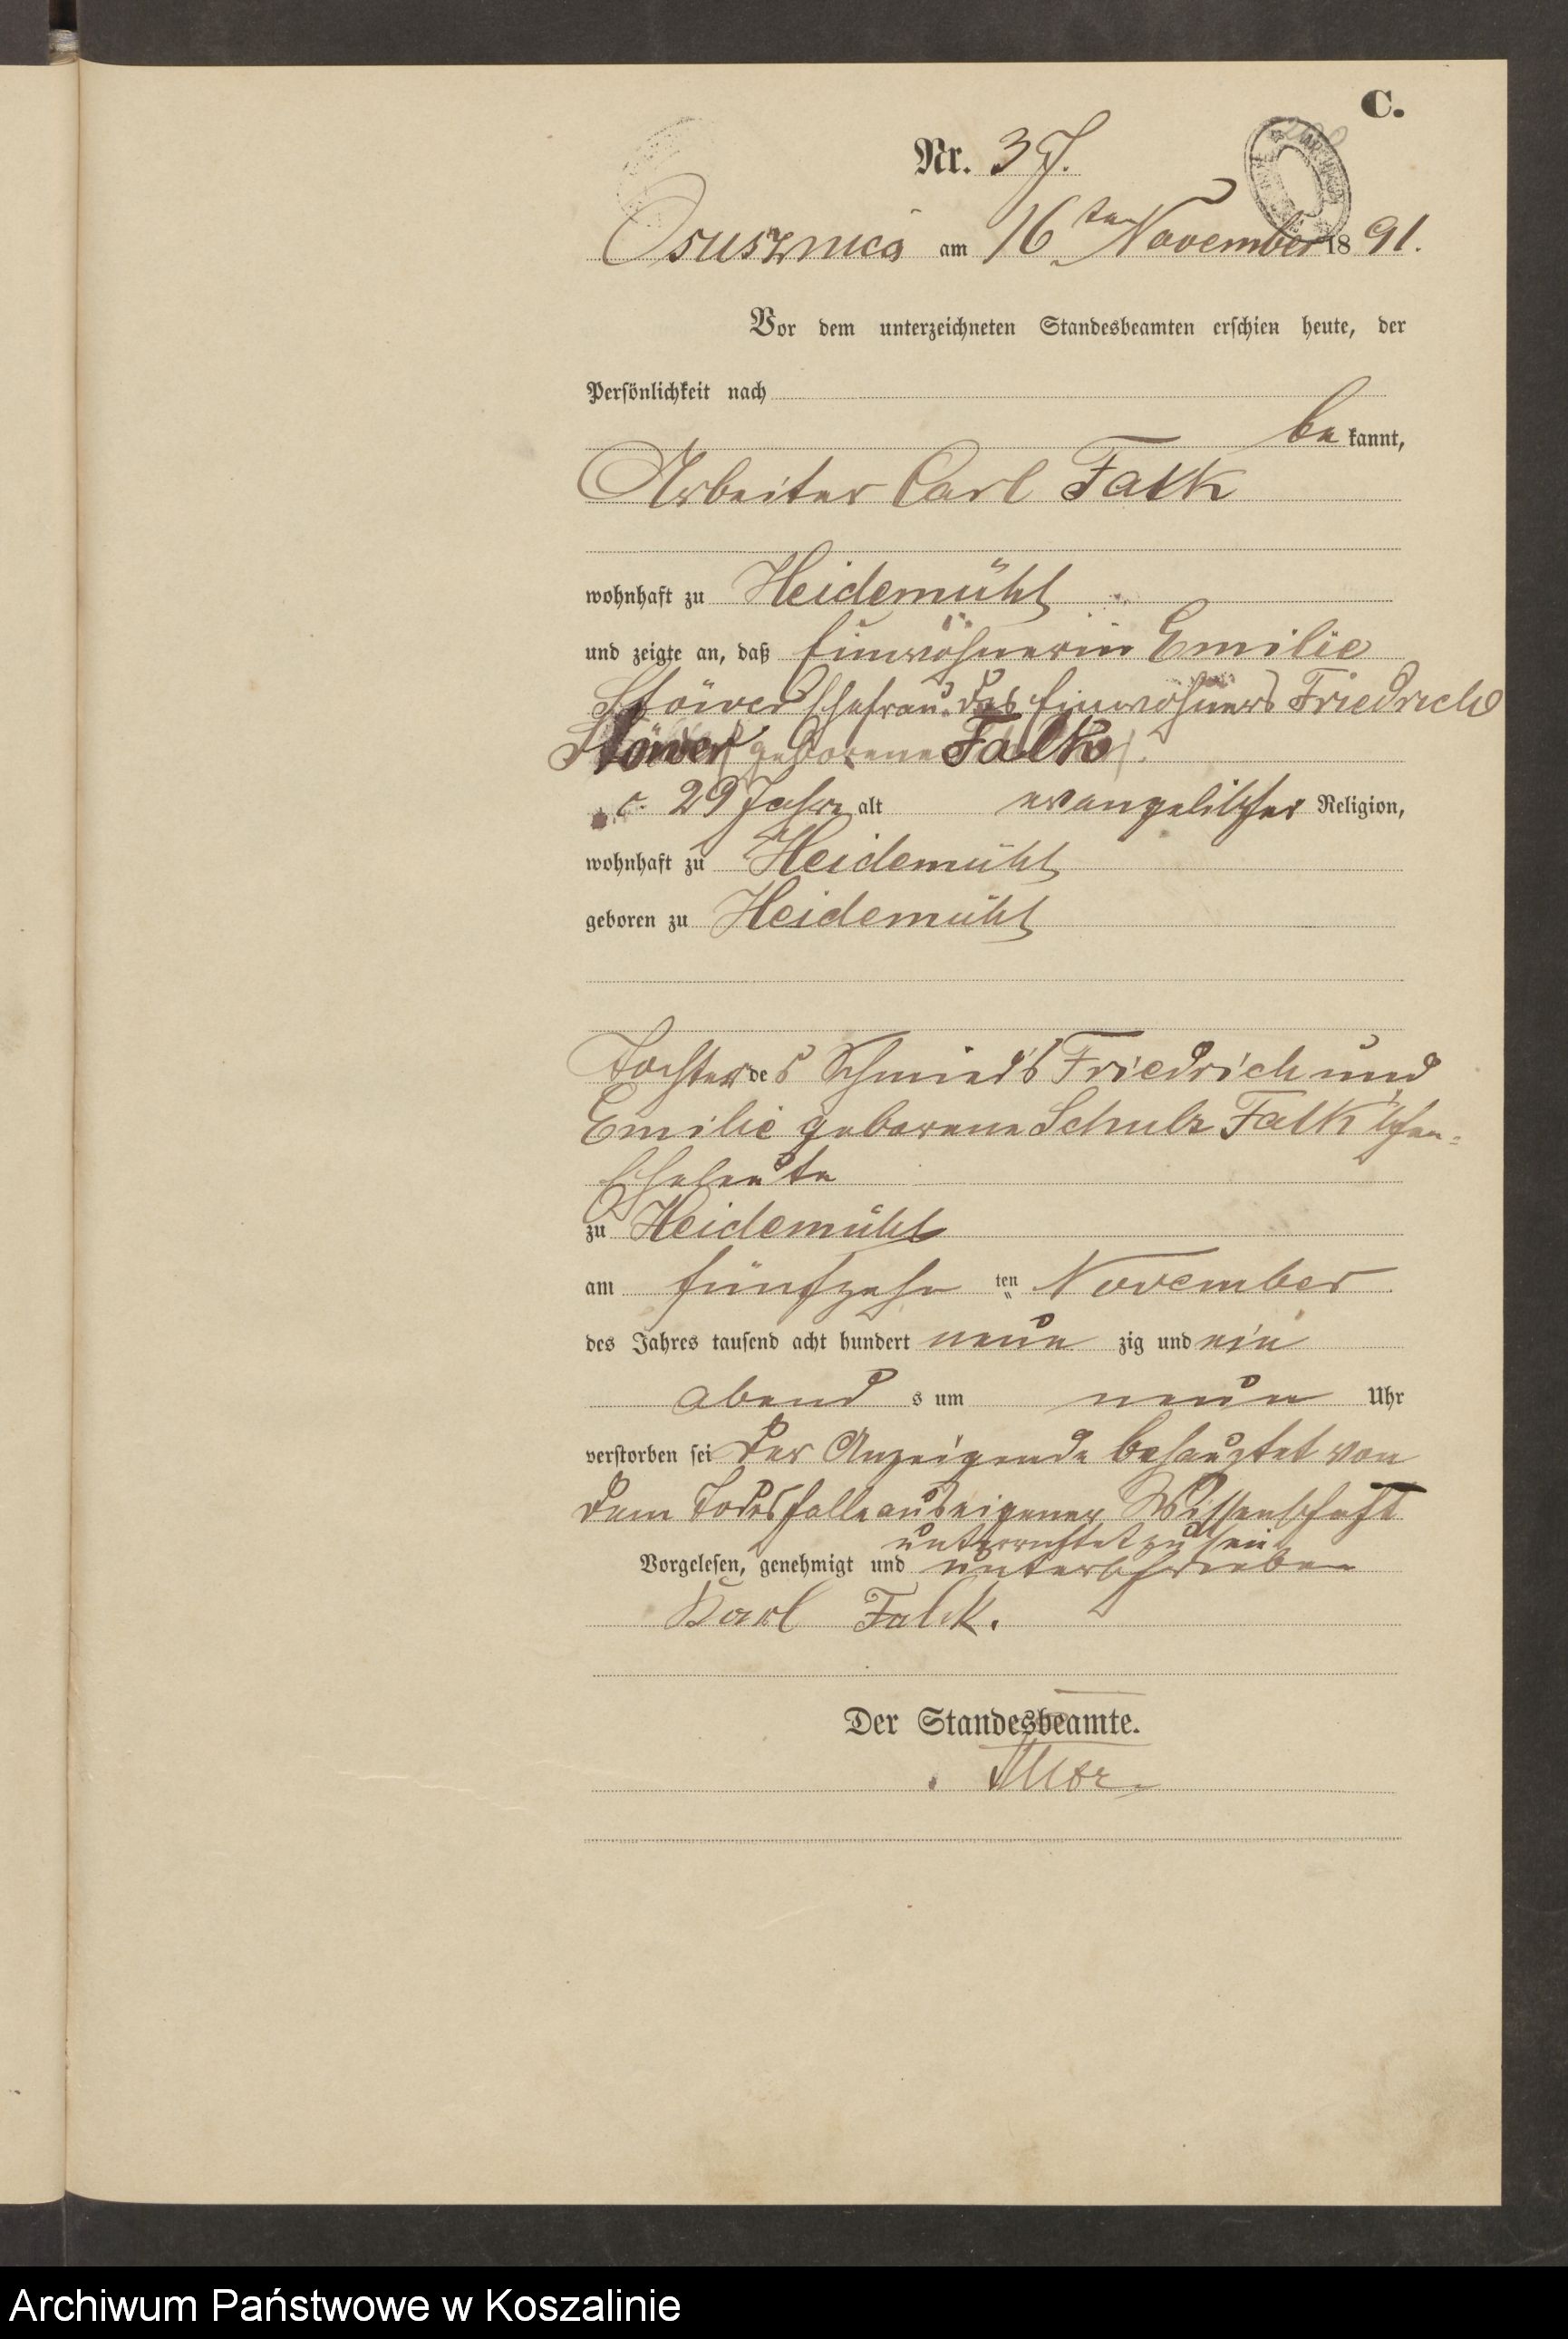 C.
Nr. 37.
Osusznica am 16ten November 1891.
Vor dem unterzeichneten Standesbeamten erschien heute, der
Persönlichkeit nach
be kannt,
Arbeiter Carl Falk
wohnhaft zu Heidemühl
und zeigte an, daß Einwohnerin Emilie
Stöwer Ehefrau des Einwohners Friedrich
Stöwer geborene Falk
c. 29 Jahre alt evangelischer Religion,
wohnhaft zu Heidemühl
geboren zu Heidemühl
Tochter des Schmieds Friedrich und
Emilie geborene Schulz Falk'schen
Eheleute
zu Heidemühl
am fünfzehn ten November
des Jahres tausend acht hundert neun zig und ein
abend s um neun Uhr
verstorben sei Der Anzeigende behauptet von
dem Todesfalle aus eigener Wissenschaft
unterrichtet zu sein
Vorgelesen, genehmigt und unterschrieben
Karl Falk.
Der Standesbeamte.
Archiwum Państwowe w Koszalinie